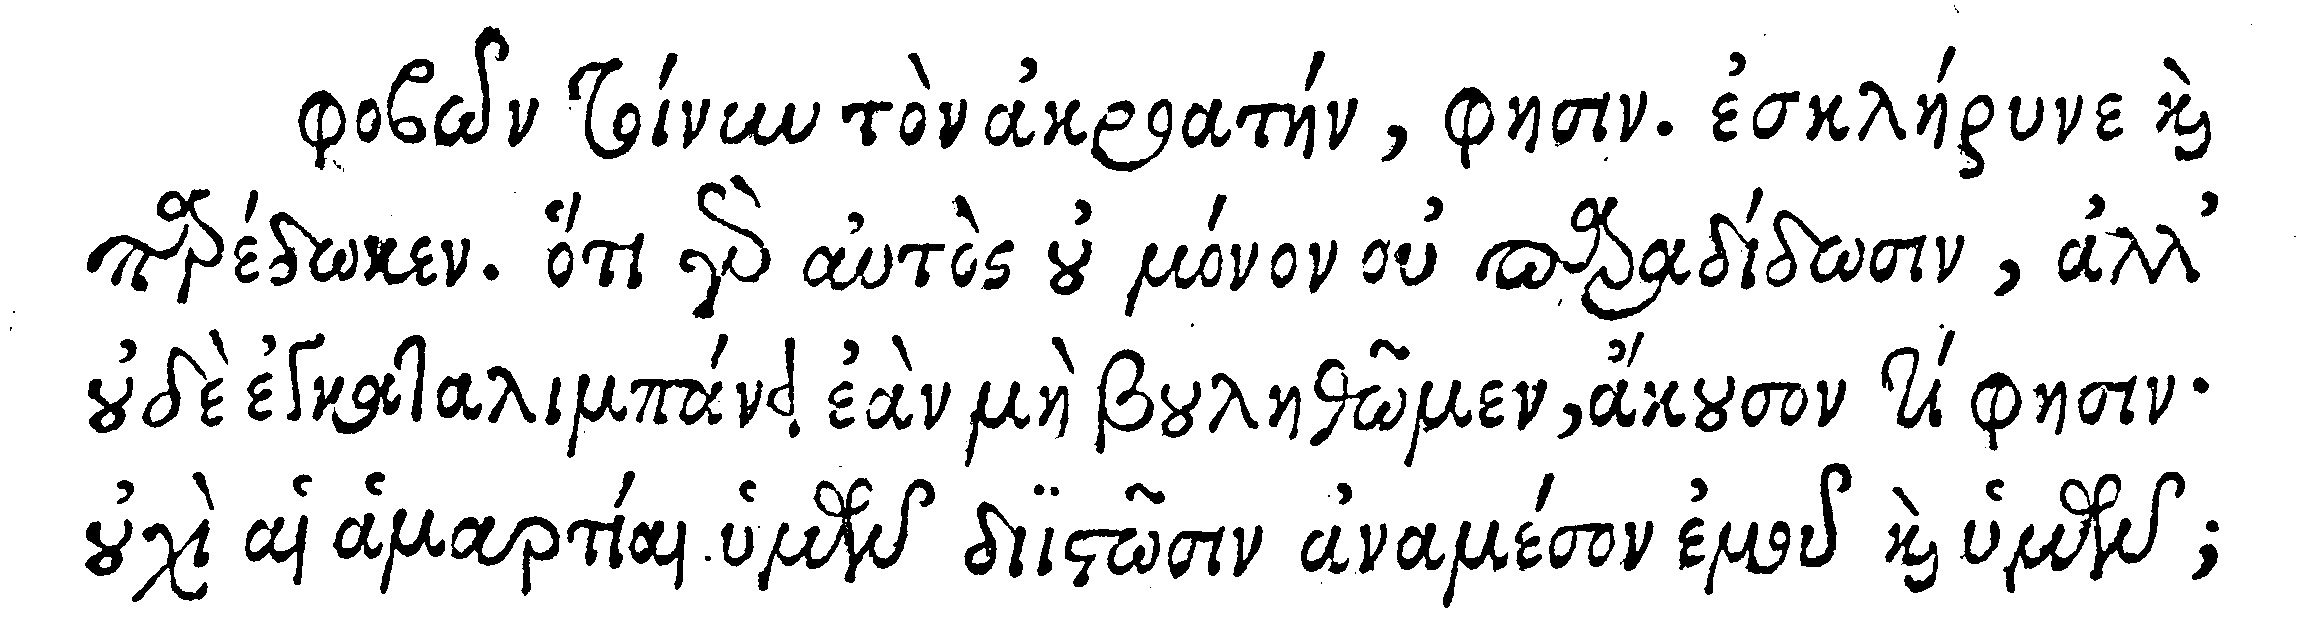 φοβῶν τοίνυν τὸν ἀκροατήν, φησιν. ἐσκλήρυνε καὶ
παρέδωκεν. ὅτι γὰρ αὐτὸς οὐ μόνον οὐ παραδίδωσιν, ἀλλ᾽
οὐδὲ ἐγκαταλιμπάνει ἐὰν μὴ βουληθῶμεν, ἄκουσον τί φησιν·
οὐχὶ αἱ ἁμαρτίαι ὑμῶν διϊστῶσιν ἀναμέσον ἐμοῦ καὶ ὑμῶν;